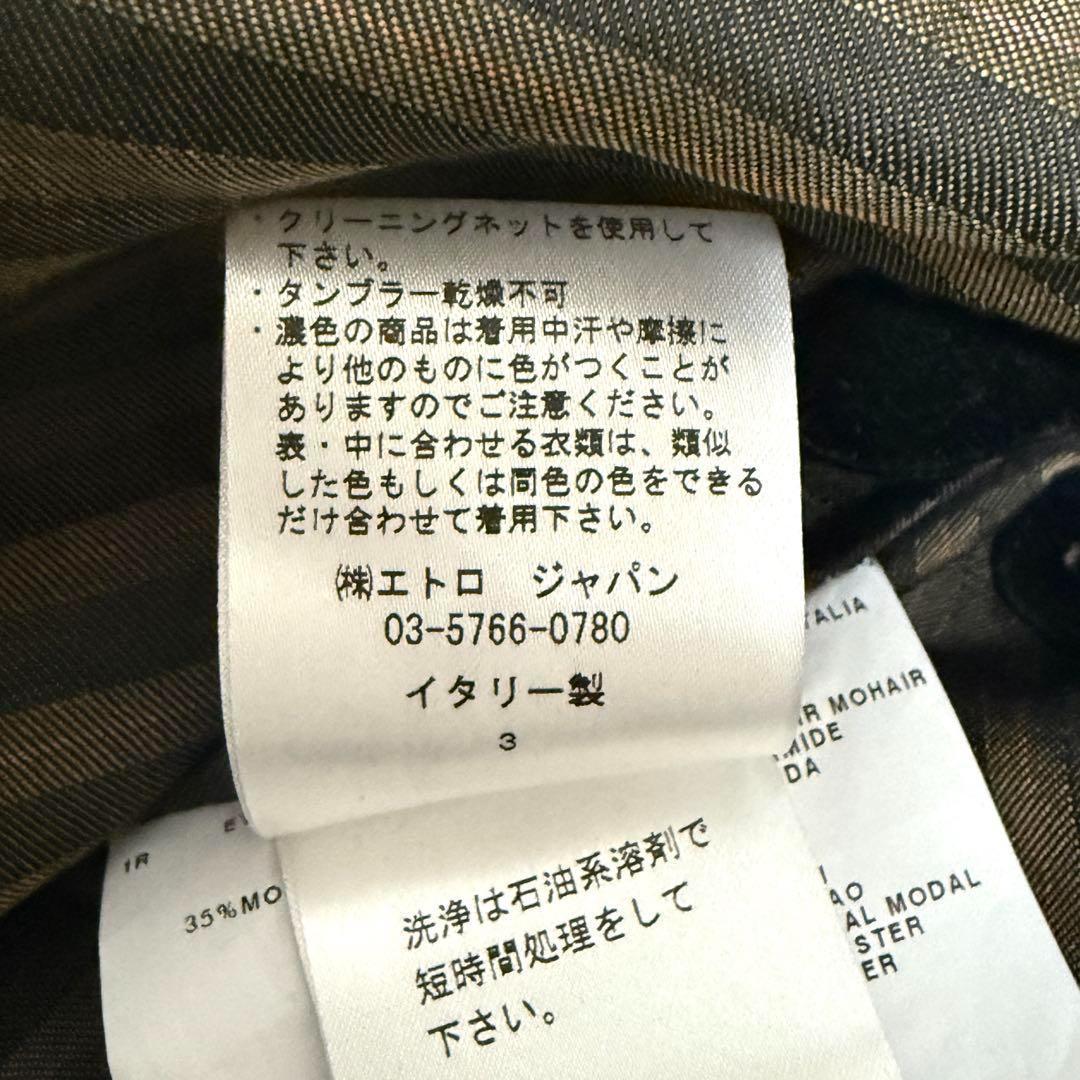 ・クリーニングネットを使用して
下さい。
・タンブラー乾燥不可
・濃色の商品は着用中汗や摩擦に
より他のものに色がつくことが
ありますのでご注意ください。
表・中に合わせる衣類は、類似
した色もしくは同色の色をできる
だけ合わせて着用下さい。
㈱エトロ ジャパン
03-5766-0780
イタリー製
3
洗浄は石油系溶剤で
短時間処理をして
下さい。
1R
35%MO
TALIA
IR MOHAIR
MIDE
DA
AO
AL MODAL
STER
ER